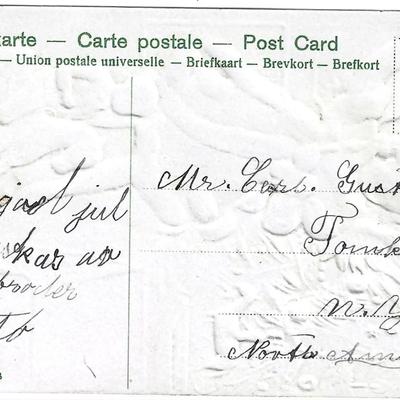 karte — Carte postale — Post Card
— Union postale universelle — Briefkaart — Brevkort — Brefkort
god jul
skas av
broder
Mr. Carl. Gust
Tomk
N. Y
North Am